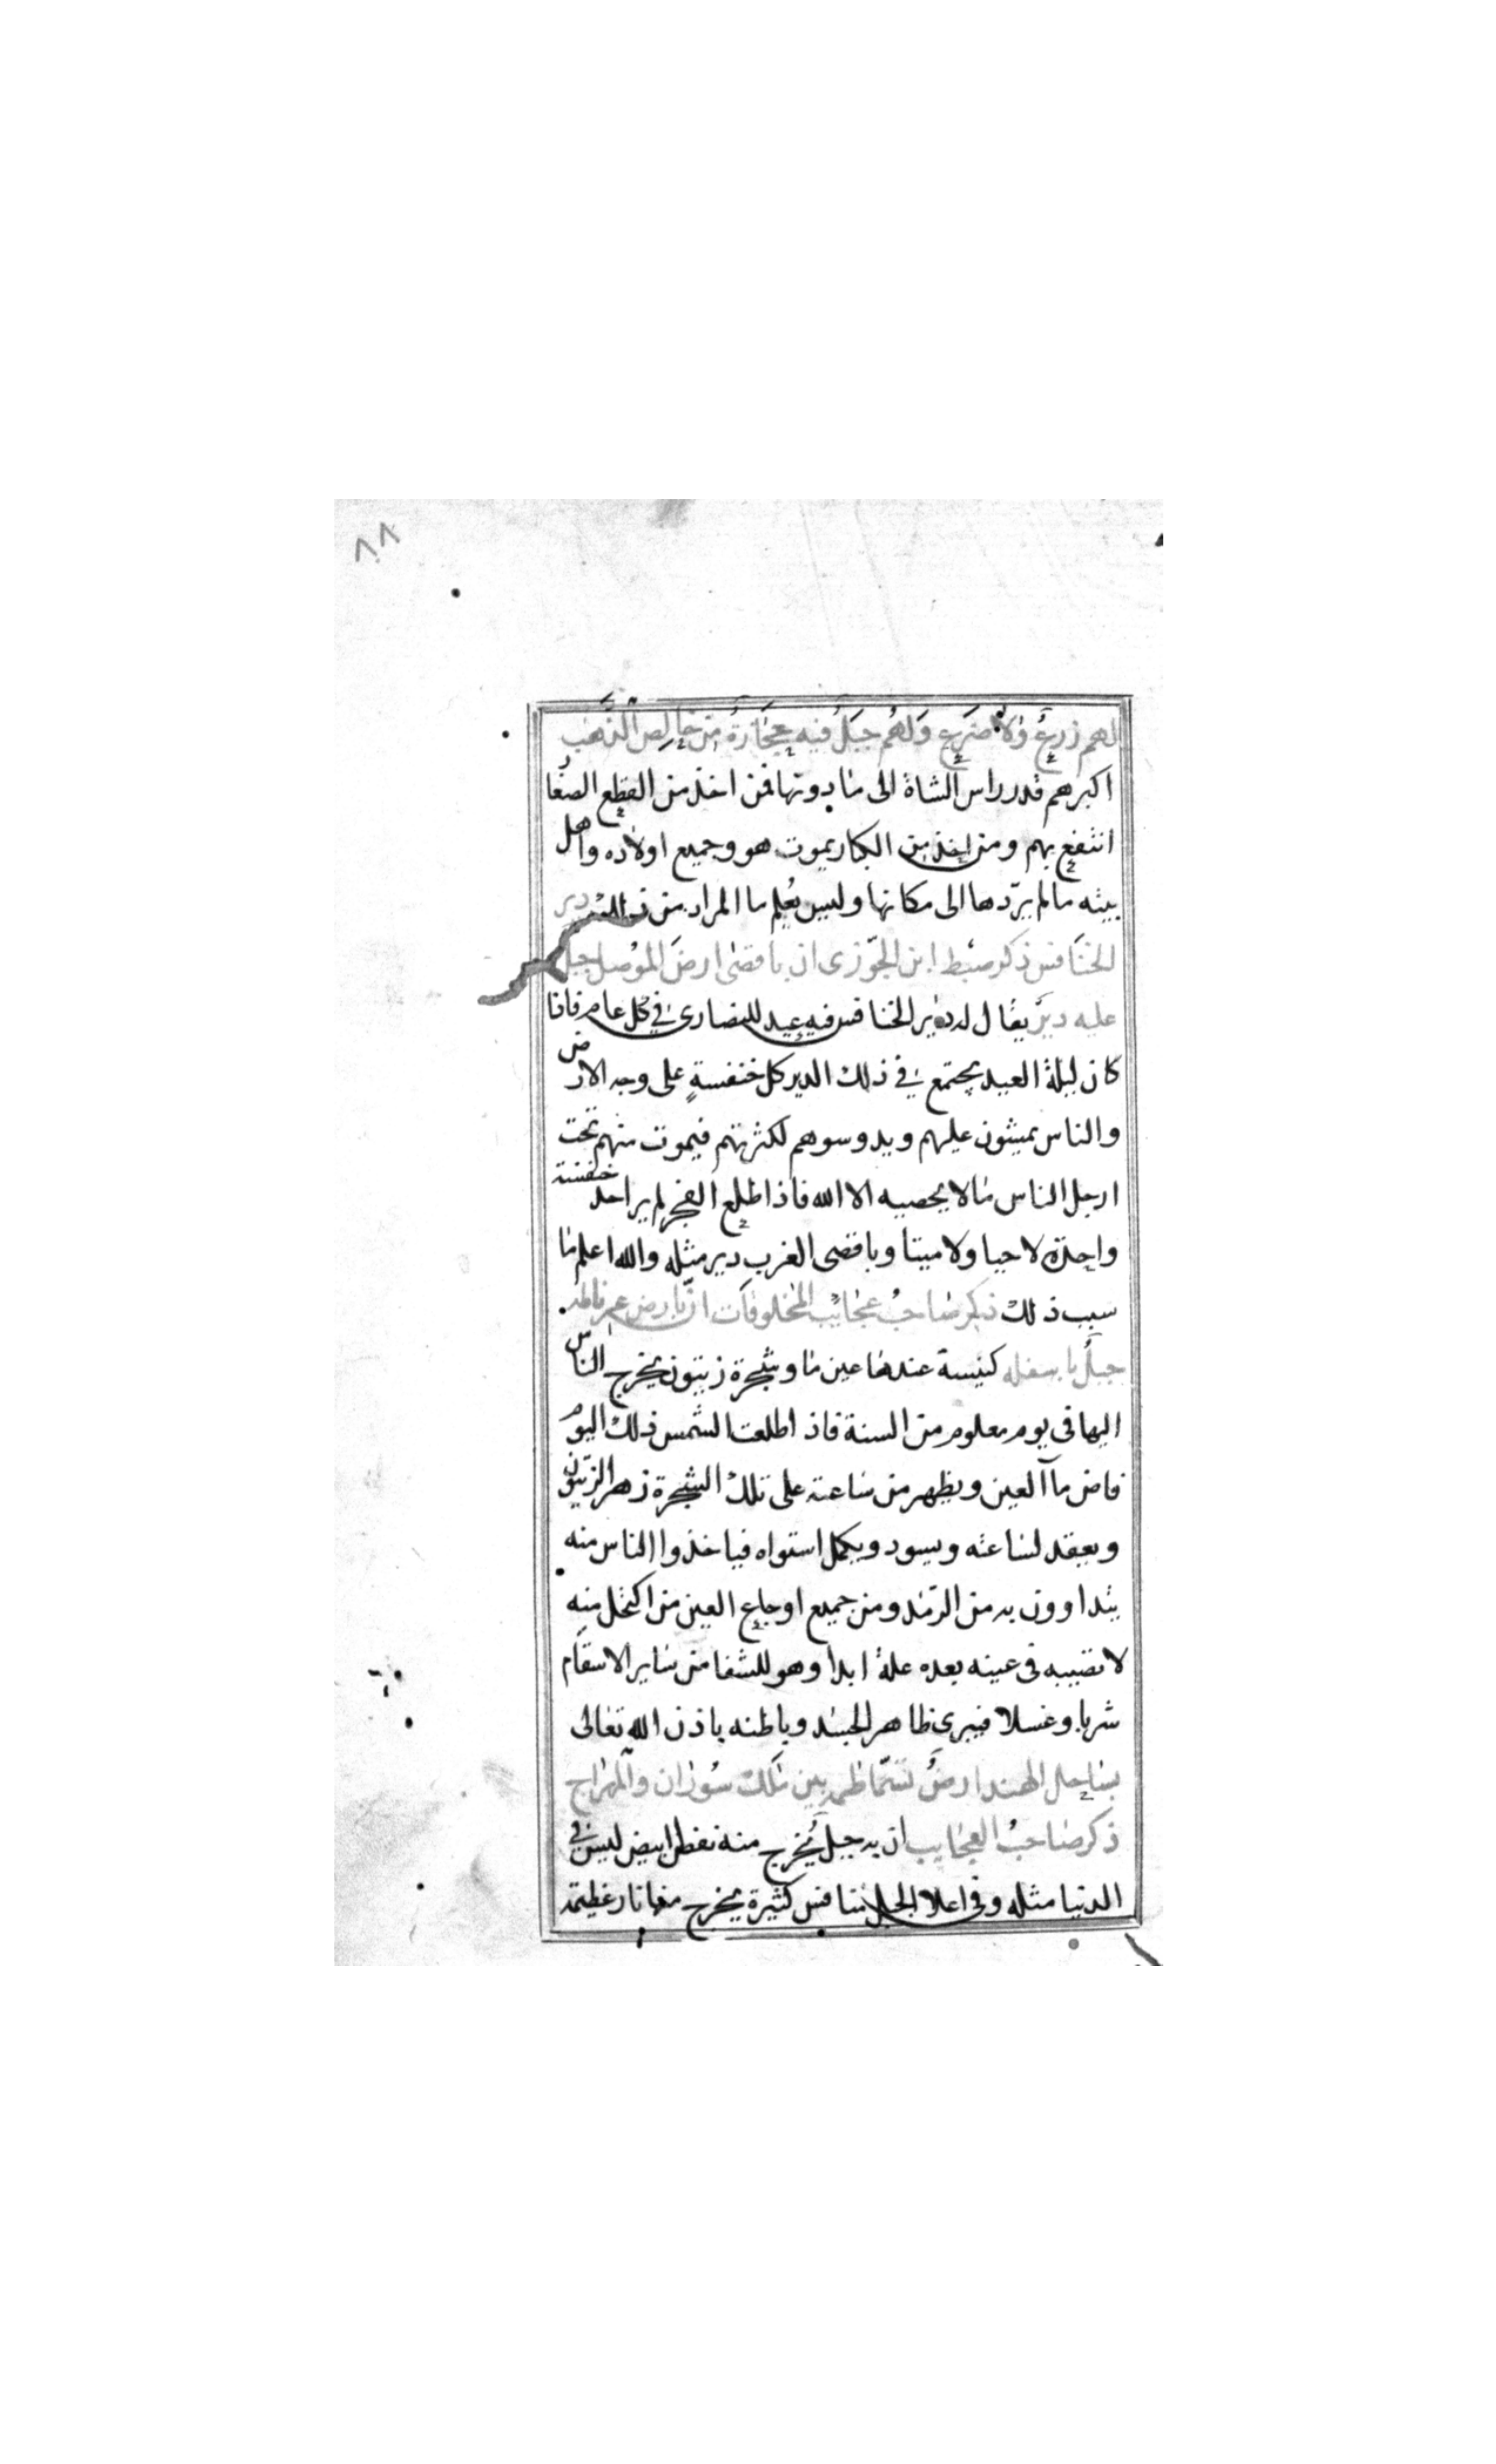 ٨٨
لهم زرعٌ ولا ضرع ولهم جبلٌ فيه حجارة من خالص الذهب
اكبرهم قدر راس الشاة الى ما دونها فمن اخذ من القطع الصغا
انتفع بهم ومن اخذ من الكبار يموت هو وجميع اولاده واهل
بيته ما لم يردّها الى مكانها وليس يُعلم ما المراد من ذلك دير
الخنافس ذكر سبط ابن الجوّزى ان باقصى ارض الموصل جبل
عليه ديرٌ يقال له دير الخنافس فيه عيد للنصارى في كل عام فاذا
كان ليلة العيد يجتمع في ذلك الدير كل خنفسةٍ على وجه الارض
والناس يمشون عليهم ويدوسوهم لكثرتهم فيموت منهم تحت
ارجل الناس ما لا يحصيه الا الله فاذا طلع الفجر لم ير احد خنفسة
واحدة لا حيا ولا ميتا وباقصى الغرب دير مثله والله اعلم ما
سبب ذلك ذكر صاحبُ عجايب المخلوقات انّ بارض
جبلٌ باسفله كنيسة عندها عين ما وشجرة زيتون يخرج الناس
اليها فى يوم معلوم من السنة فاذا طلعت الشمس ذلك اليوم
فاض مآ العين ويظهر من ساعته على تلك الشجرة زهر الزيتون
ويعقد لساعته ويسود ويكمل استواه فياخذوا الناس منه
يتداوون به من الرمد ومن جميع اوجاع العين من اكتحل منه
لا تصيبه فى عينه بعده علة ابدا وهو للشفا من ساير الاسقام
شربا وغسلا فيبرى ظاهر الجسد وباطنه باذن الله تعالى
بساحل الهند ارضٌ تسمّا بين ملك سوران والمهراج
ذكر صاحبُ العجايب ان به جبل يُخرج منه نفط ابيض ليس في
الدنيا مثله وفى اعلا الجبل منافس كثيرة يخرج منها نار عظيمة